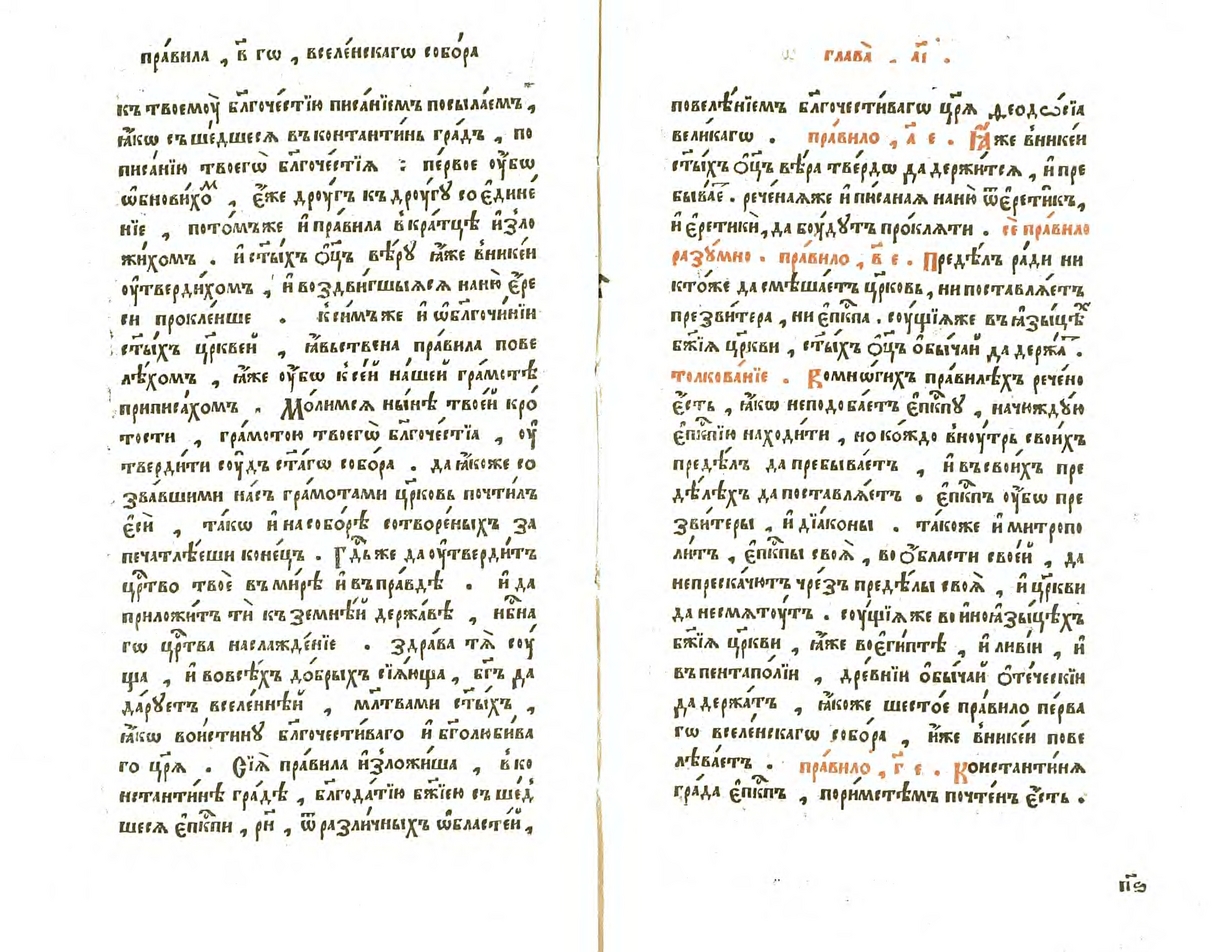 пра́вила , в҃ гѡ , вселе́нскагѡ собо́ра
къ твоемоу̀ бл҃гоче́стїю писа́нїемъ посыла́емъ ,
ꙗ҆́кѡ съше́дшеся въконтанти́нь гра́дъ , по
писа́нїю твоегѡ̀ бл҃гоче́стїѧ : пе́рвое оу҆́бѡ
ѡ҆бнови́хоⷨ , є҆́же дроу́гъ къдро́угꙋ соедине́
нїе , пото́мъже и҆пра́вила вкра́тцѣ и҆зло
жи́хомъ . и҆ ст҃ы́хъ ѻ҆ц҃ъ вѣ́рꙋ ꙗ҆́же вники́и
оу҆тверди́хомъ , и҆ воздви́гшыѧсѧ наню̀ є҆́ре
си прокле́нше . ксимъже и҆ ѡ҆бл҃гочи́нїи
ст҃ы́хъ цр҃кве́й , ꙗ҆́вьствена пра́вила пове
лѣ́хомъ , ꙗ҆́же оу҆́бѡ ксе́й на́шей гра́мотѣ
приписа́хомъ . Мо́лимсѧ ны́нѣ твое́й кро́
тости , гра́мотою твоегѡ̀ бл҃гоче́стїа , оу҆
тверди́ти соу́дъ ст҃а́гѡ собо́ра . да ꙗ҆́коже со
зва́вшими на́съ гра́мотами цр҃ковь почти́лъ
є҆сѝ , та́кѡ и҆насобо́рѣ сотворе́ныхъ за
печатлѣ́еши коне́цъ . Гд҇ьже да оу҆тверди́тъ
цр҇тво твоѐ въми́рѣ и҆въпра́вдѣ . и҆ да
приложи́тъ тѝ къ земнѣ́й держа́вѣ , нб҇на
гѡ цр҇тва наслажде́нїе . здра́ва тѧ̀ соу́
ща , и҆ вовсѣ́хъ до́брыхъ сїѧ́юща , бг҃ъ да
да́рꙋетъ вселе́ннѣй , мл҃твами ст҃ы́хъ ,
ꙗ҆́кѡ вои́стинꙋ бл҃гочести́ваго и҆ бг҃олюби́ва
го цр҃ѧ̀ . Сїѧ̀ пра́вила и҆зложи́ша , вко
нстанти́нѣ гра́дѣ , бл҃года́тїю бж҃їею съше́д
шесѧ є҆пк҇пи , рн҃ , ѿ разли́чныхъ ѡ҆бласте́й ,
глава̀ . а҃і .
повелѣ́нїемъ бл҃гочести́вагѡ цр҃ѧ̀ ѳеодѡ́сїа
вели́кагѡ . пра́вило , а҃ е . Ꙗ҆́же вники́и
ст҃ы́хъ ѻ҆ц҃ъ вѣ́ра тве́рдѡ да держи́тсѧ , и҆ пре
быва́еⷮ . рече́наѧже и҆ пи́санаѧ наню̀ ѿ є҆рети́къ ,
и҆ є҆рети́ки , да боу́дꙋтъ про́клѧти . сѐ пра́вило
разꙋ́мно . пра́вило , в҃ е . Предѣ́лъ ра́ди ни
кто́же да смѣша́етъ цр҃ковь , ни поставлѧ́етъ
презви́тера , ни є҆пк҇па . соу́щїѧже въ ꙗ҆зы́цѣⷯ
бж҃їѧ цр҃кви , ст҃ы́хъ ѻ҆ц҃ъ ѻ҆бы́чай да держа́ⷮ .
толкова́нїе . Вомнѡ́гихъ пра́вилѣхъ рече́но
є҆́сть , ꙗ҆́кѡ неподоба́етъ є҆пк҇пꙋ , начюждꙋ́ю
є҆пк҇пїю находи́ти , но ко́ждо вноу́трь свои́хъ
предѣ́лъ да пребыва́етъ , и҆ въсвои́хъ пре
дѣ́лѣхъ да поставлѧ́етъ . є҆пк҇пъ оу҆́бѡ пре
зви́теры , и҆ дїа́коны . та́коже и҆ митропо
ли́тъ , є҆пк҇пы своѧ̀ , во ѻ҆́бласти свое́й , да
непреска́чютъ чре́зъ предѣ́лы своѧ̀ , и҆ цр҃кви
да несмѧтоу́тъ . соу́щїѧже во и҆ноꙗзы́цѣхъ
бж҃їѧ цр҃кви , ꙗ҆́же воє҆ги́птѣ , и҆ ливі́и , и҆
въпентапо́лїи , дре́внїи ѻ҆бы́чай ѻ҆те́ческїи
да держа́тъ , ꙗ҆́коже шесто́е пра́вило пе́рва
гѡ вселе́нскагѡ собо́ра , и҆́же вники́и пове
лѣва́етъ . пра́вило , г҃ е . Константи́нѧ
гра́да є҆пк҇пъ , пори́мстѣмъ почте́нъ є҆́сть .
п҃ѕ